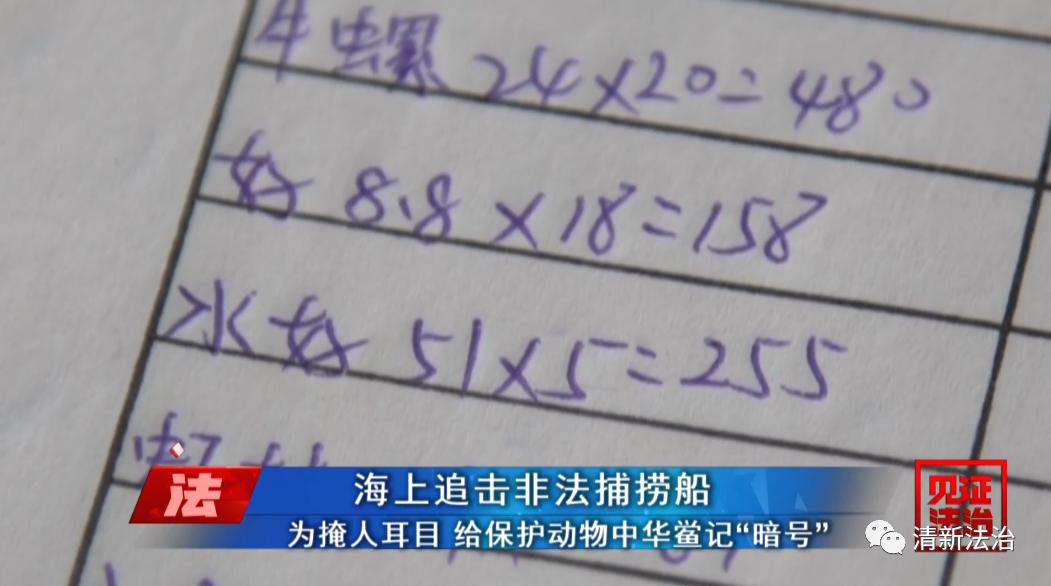 牛螺 24×20=480
8.8×18=158
水 51×5=255
法
海上追击非法捕捞船
为掩人耳目 给保护动物中华鲎记“暗号”
见证
法治
清新法治